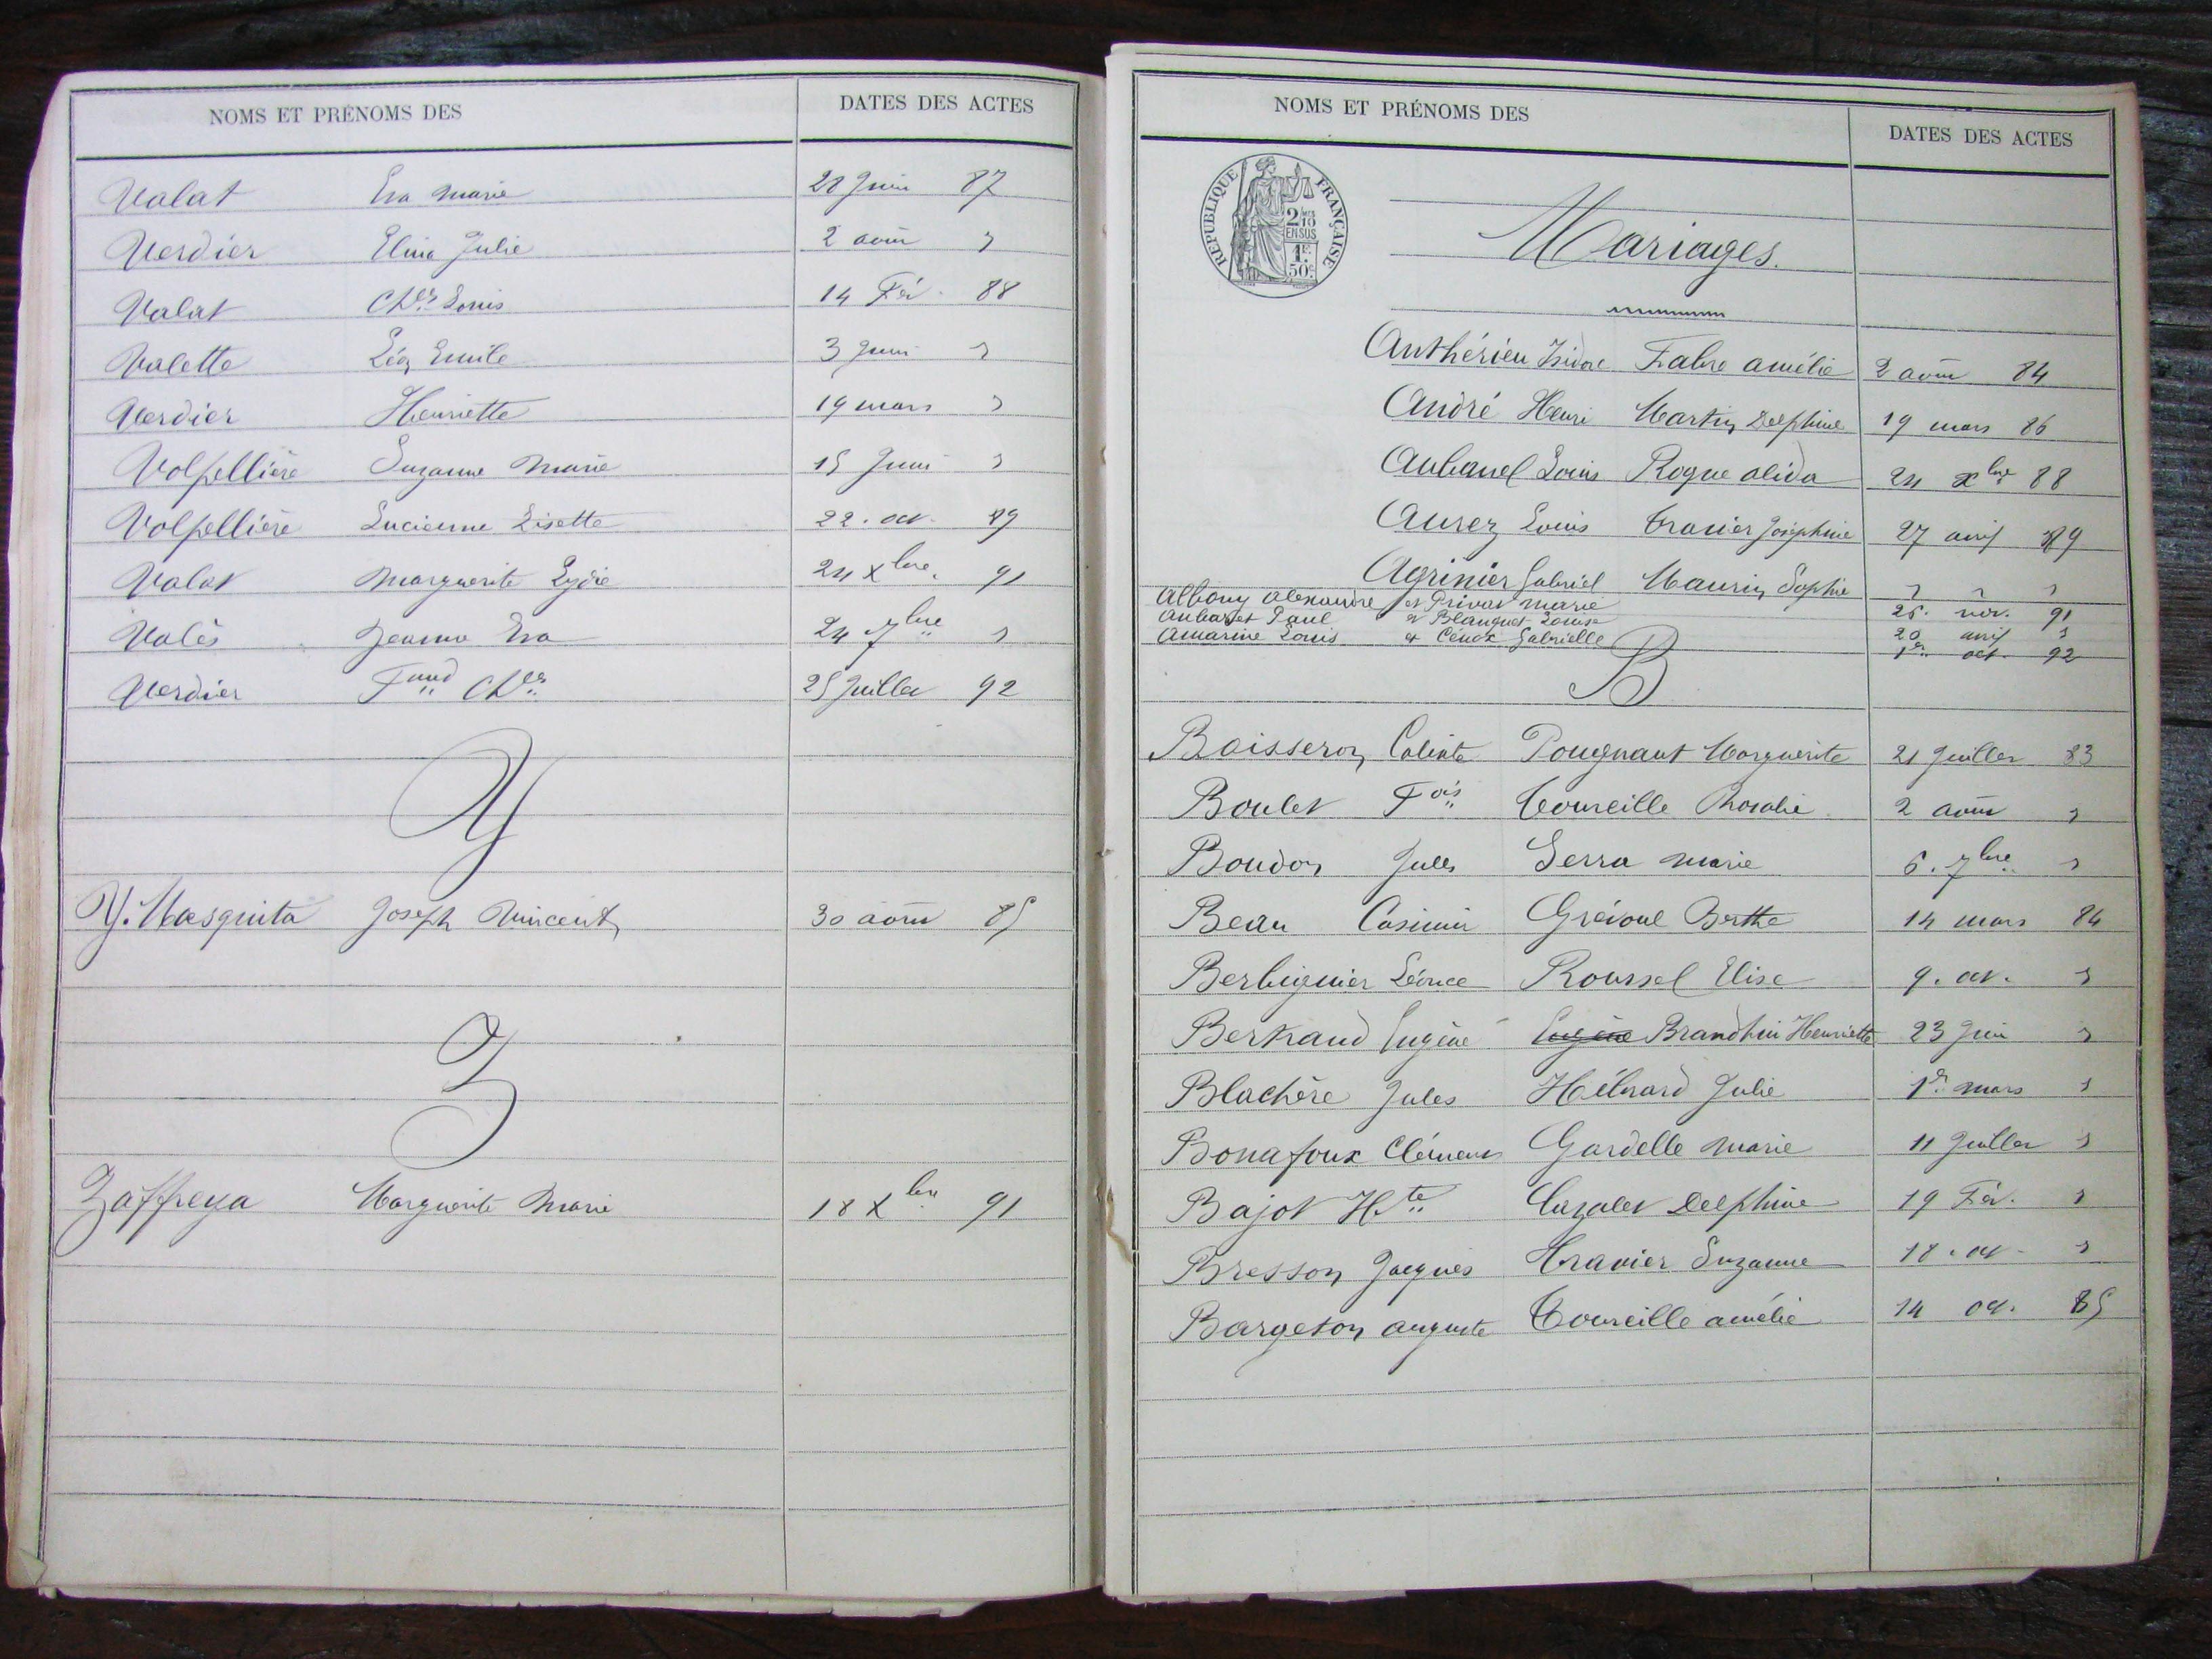 NOMS ET PRÉNOMS DES DATES DES ACTES
Valat Eva Marie 28 Juin 87
Verdier Elina Julie 2 août "
Valat Ch.les Louis 14 Fév. 88
Valette Léon Emile 3 Juin "
Verdier Henriette 19 mars "
Volpellière Suzanne Marie 15 Juin "
Volpellière Lucienne Lisette 22. oct. 89
Valat Marguerite Lydie 24 Xbre. 91
Valès Jeanne Eva 24 7bre "
Verdier F.nand Ch.les 25 Juillet 92
Y
Y. Masquita Joseph Vincent 30 août 85
Z
Zaffreya Marguerite Marie 18 Xbre 91
NOMS ET PRÉNOMS DES DATES DES ACTES
REPUBLIQUE FRANÇAISE
2/10
EN SUS
1F.
50c
Mariages.
Anthérieu Isidore Fabre Amélie 2 août 84
André Henri Martin Delphine 19 mars 86
Aubanel Louis Roque Alida 24 Xbre 88
Aurez Louis Travier Joséphine 27 avril 89
Agrinier Gabriel Maurin Sophie " " "
Albouy Alexandre et Privat Marie 25. nov. 91
Aubaret Paul et Blanquet Louise 20 avril "
Amarine Louis et Gabrielle 1er oct. 92
B
Boisseron Calixte Pougnant Marguerite 21 Juillet 83
Boulet F.ois Toureille Rosalie 2 août "
Boudon Jules Serra Marie 6. 7bre "
Beau Casimir Gréioul Berthe 14 mars 84
Berbiguier Léonce Roussel Elise 9. oct. "
Bertrand Eugène Eugène Brandhin Henriette 23 Juin "
Blachère Jules Hébrard Julie 1er mars "
Bonafoux Clément Gardelle Marie 11 Juillet "
Bajot H.te Cazalet Delphine 19 Fév. "
Bresson Jacques Travier Suzanne 18. oct. "
Bargeton Auguste Toureille Amélie 14 oct. 85